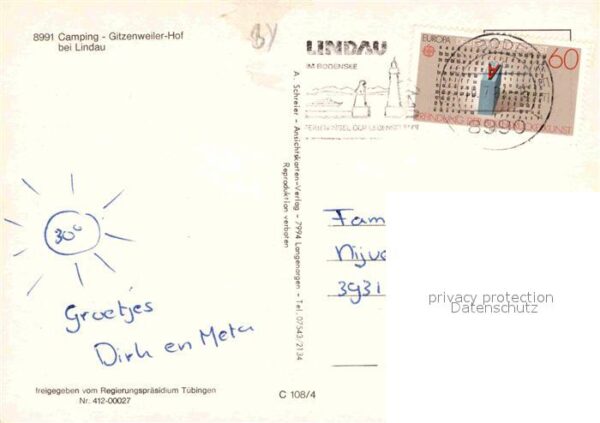 8991 Camping - Gitzenweiler-Hof
bei Lindau
LINDAU
IM BODENSEE
EUROPA
60
8990
A. Schreier - Ansichtskarten-Verlag - 7994 Langenargen - Tel. 07543/2134
Reproduktion verboten
30°
Groetjes
Dirk en Meta
Fam
Nijve
3931
privacy protection
Datenschutz
freigegeben vom Regierungspräsidium Tübingen
Nr. 412-00027
C 108/4